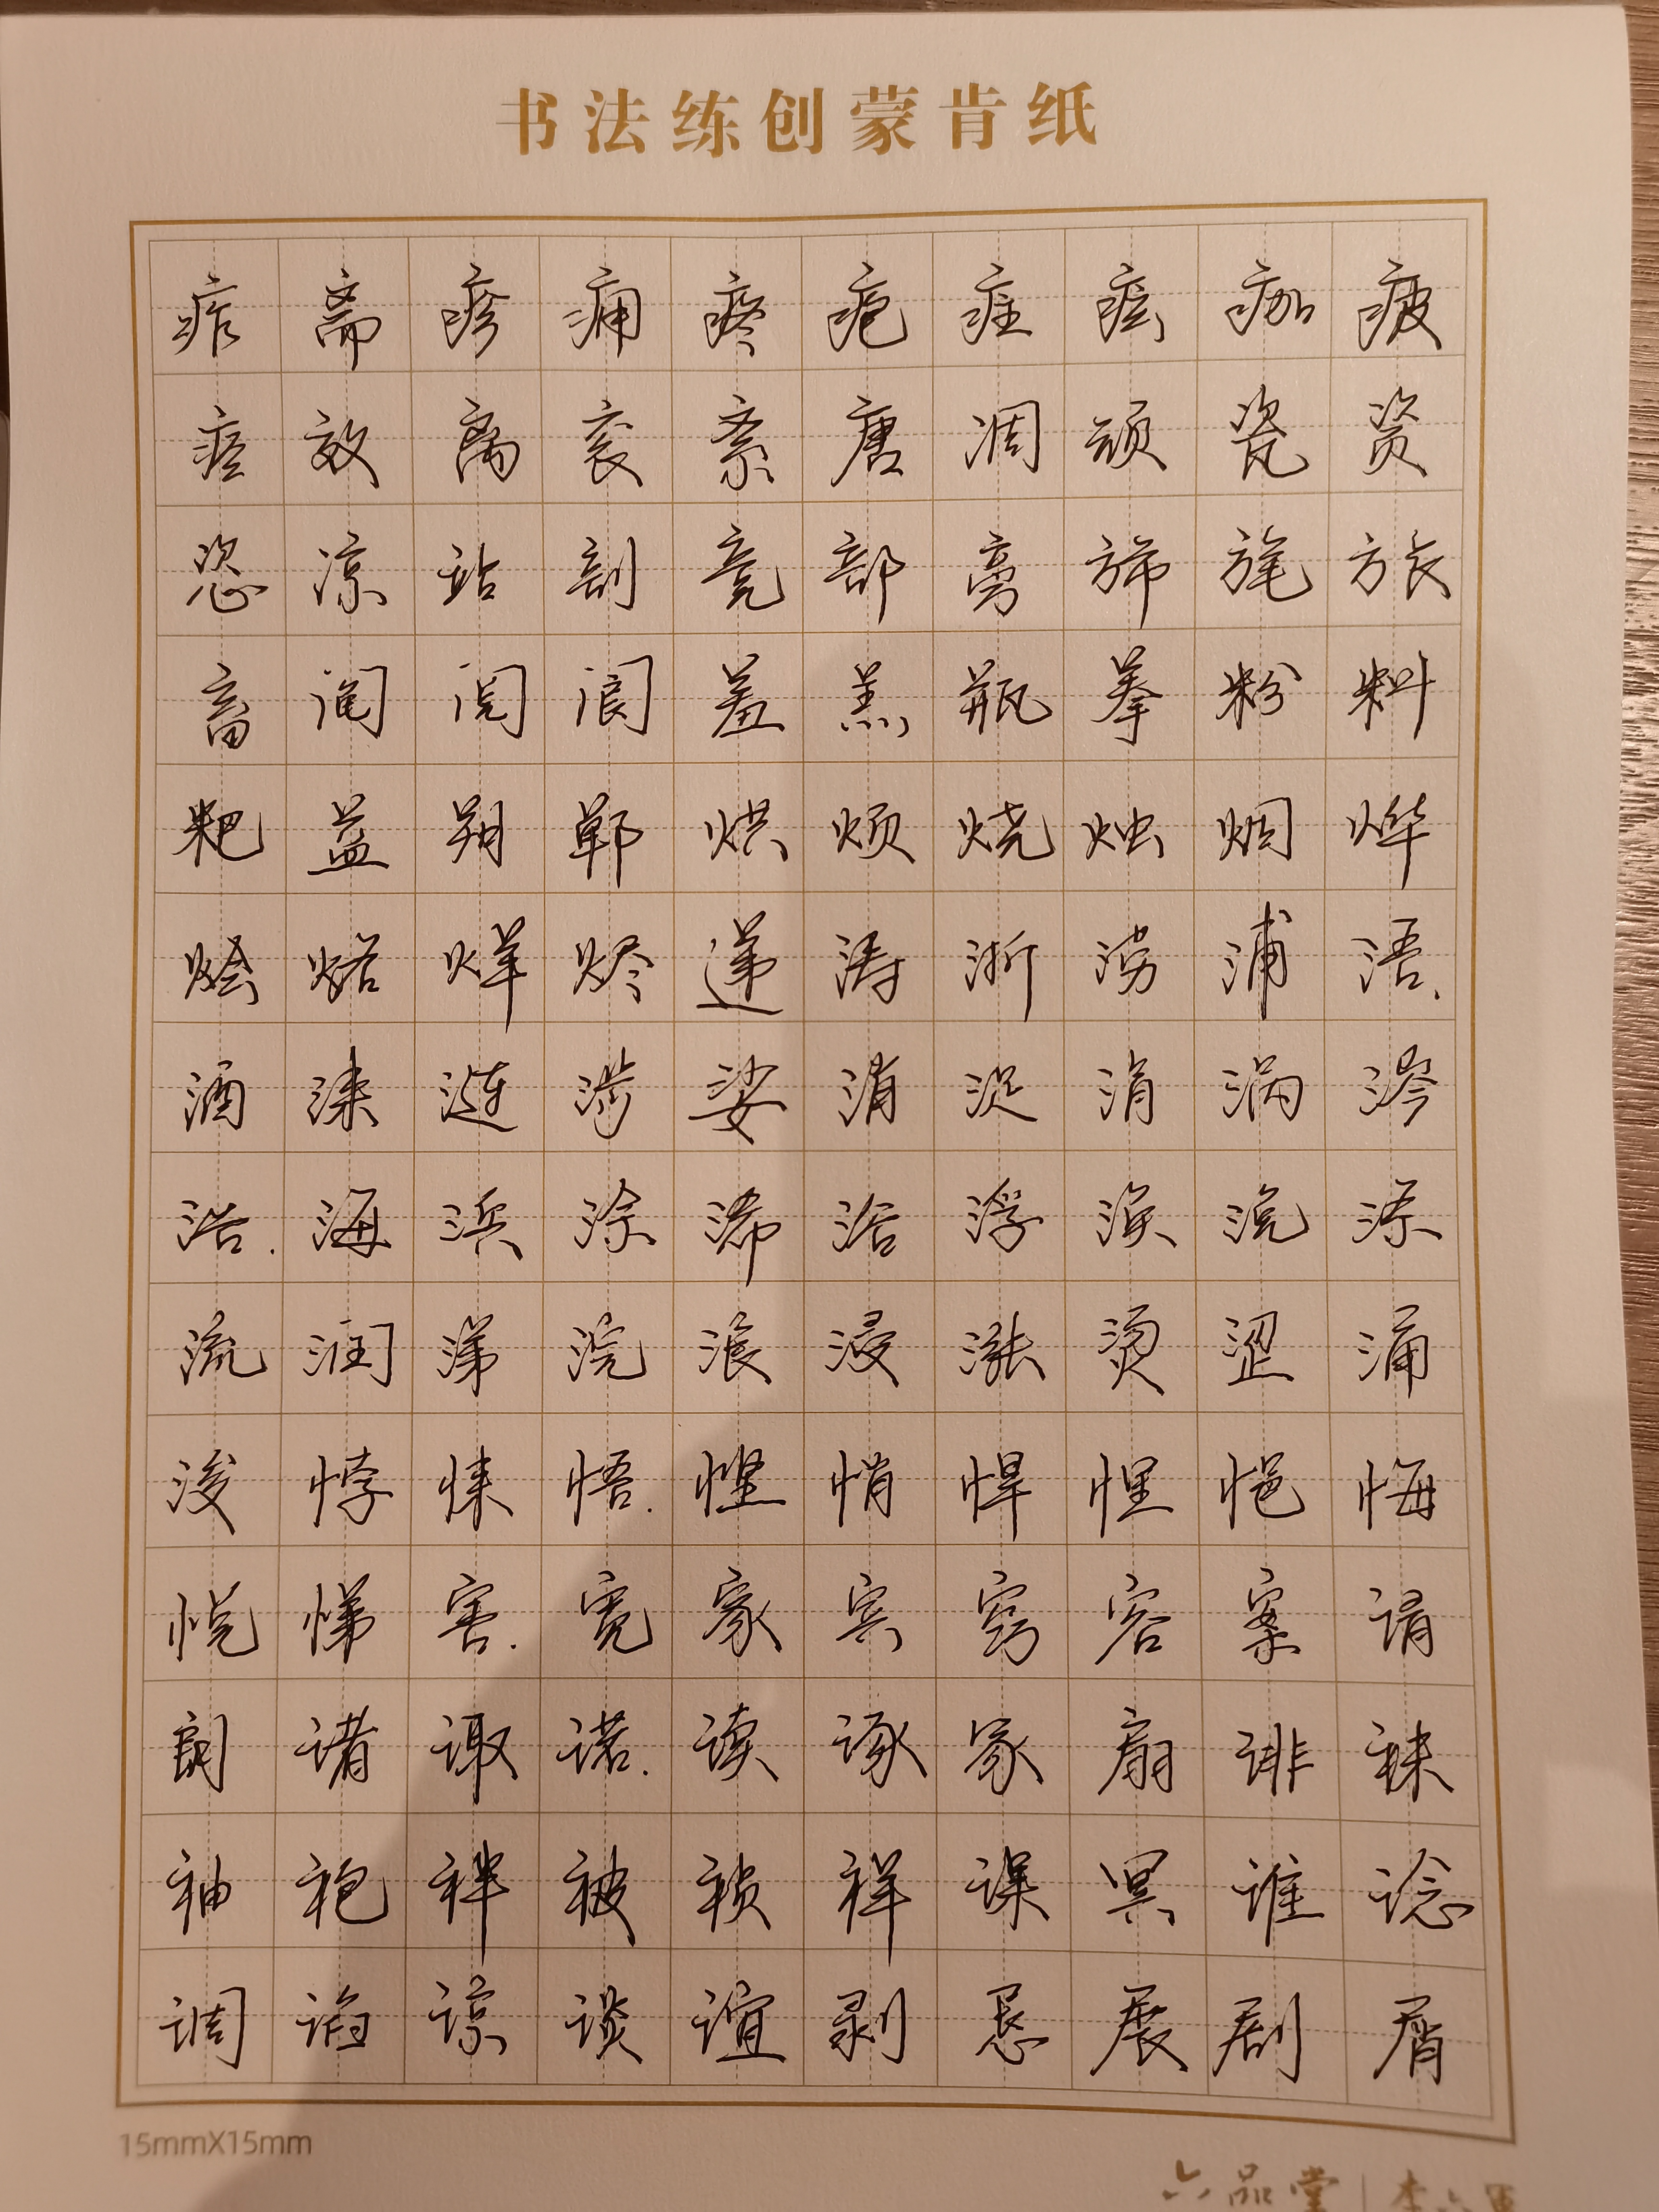 书法练创蒙肯纸
痄斋疹痈疼疱疰痃痂疲
痉效离衮紊唐凋颃瓷资
恣凉站剖竞部亳旆旄旅
畜阄阅阆羞羔瓶拳粉料
粑益朔郸烘烦烧烛烟烨
烩烙烊烬递涛浙涝浦浯
酒涞涟涉娑消浞涓涡涔
浩海浜涂浠浴浮涣浼涤
流润涕浣浪浸涨烫涩涌
浚悖悚悟悭悄悍悝悒悔
悦悌害宽家宾窍容案请
朗诸诹诺读诼冢扇诽袜
袖袍袢被祯祥课冥谁谂
调谄谅谈谊剥恳展剧屑
15mmX15mm
六品堂